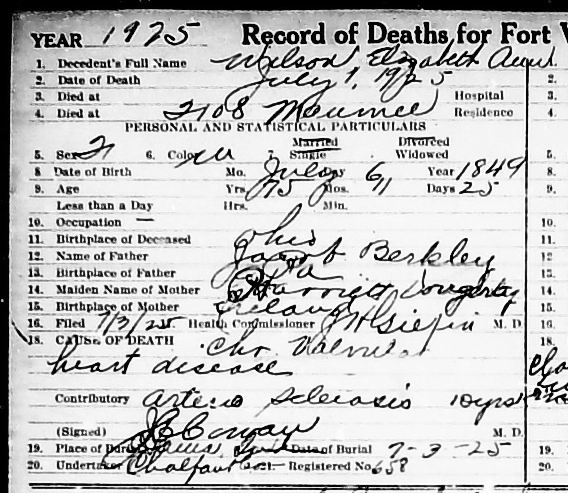 YEAR 1925 Record of Deaths for Fort
1. Decedent's Full Name Wilson, Elizabeth Ann 1.
2. Date of Death July 1, 1925 2.
3. Died at Hospital 3.
4. Died at 2108 Maumee Residence 4.
PERSONAL AND STATISTICAL PARTICULARS
Married Divorced
5. Sex F 6. Color W 7. Single Widowed 5.
8 Date of Birth Mo. July Day 6 Year 1849 8.
9. Age Yrs. 75 Mos. 11 Days 25 9.
Less than a Day Hrs. Min.
10. Occupation — 10.
11. Birthplace of Deceased Ohio 11.
12. Name of Father Jacob Berkley 12.
13. Birthplace of Father Pa 13.
14. Maiden Name of Mother Harriett Dougherty 14.
15. Birthplace of Mother Ireland 15.
16. Filed 7/3/25 Health Commissioner M. D. 16.
18. CAUSE OF DEATH Chr Valvular 18.
heart disease
Contributory Arterio Sclerosis 10 yrs
(Signed) M. D.
19. Place of Burial Date of Burial 7-3-25 19.
20. Undertaker Chalfant Registered No. 658 20.